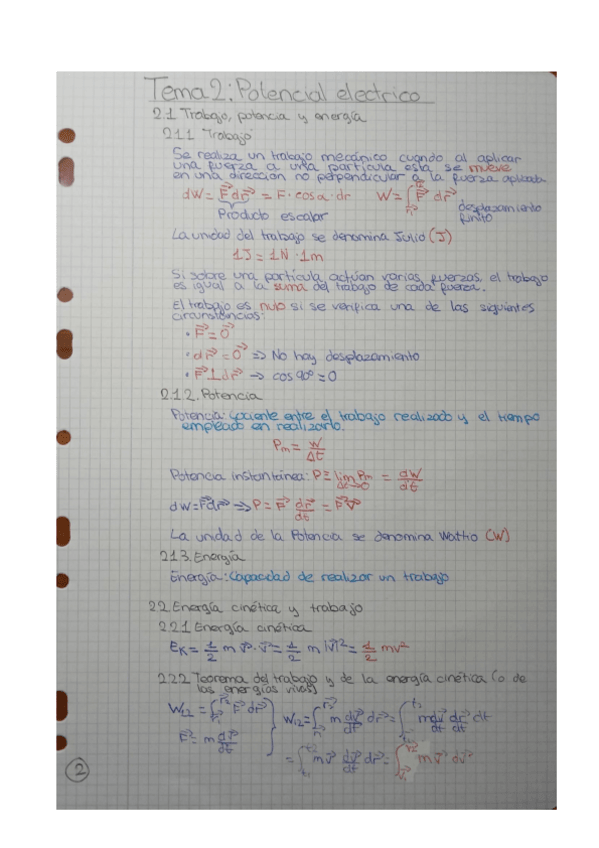 Tema 2: Potencial electrico
2.1 Trabajo, potencia y energía
2.1.1 Trabajo
Se realiza un trabajo mecánico cuando al aplicar
una fuerza a una partícula esta se mueve
en una dirección no perpendicular a la fuerza aplicada
dW = F⃗ dr⃗ = F · cosα · dr W = ∫ F⃗ dr⃗ desplazamiento
Producto escalar finito
La unidad del trabajo se denomina Julio (J)
1J = 1N · 1m
Si sobre una partícula actúan varias fuerzas, el trabajo
es igual a la suma del trabajo de cada fuerza.
El trabajo es nulo si se verifica una de las siguientes
circunstancias:
• F⃗ = 0⃗
• dr⃗ = 0⃗ => No hay desplazamiento
• F⃗ ⊥ dr⃗ → cos 90° = 0
2.1.2. Potencia
Potencia: cociente entre el trabajo realizado y el tiempo
empleado en realizarlo.
Pm = W/Δt
Potencia instantánea: P = lim Pm = dW/dt
Δt→0
dW = F⃗ dr⃗ => P = F⃗ dr⃗/dt = F⃗ v⃗
La unidad de la Potencia se denomina Wattio (W)
2.1.3. Energía
Energía: Capacidad de realizar un trabajo
2.2 Energía cinética y trabajo
2.2.1 Energía cinética
EK = 1/2 m v⃗ · v⃗ = 1/2 m |v⃗|² = 1/2 mv²
2.2.2 Teorema del trabajo y de la energía cinética (o de
las energías vivas)
W12 = ∫ F⃗ dr⃗ W12 = ∫ m dv⃗/dt dr⃗ = ∫ m dv⃗/dt dr⃗/dt dt
F⃗ = m dv⃗/dt
= ∫ m v⃗ dv⃗/dt dr⃗ = ∫ m v⃗ dv⃗
2